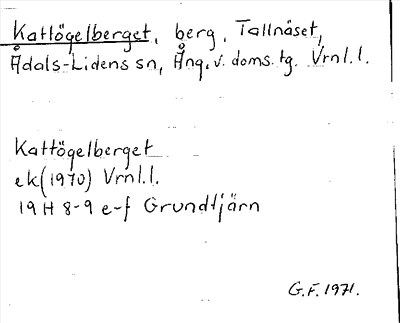 Kattögelberget, berg, Tallnäset,
Ådals-Lidens sn, Ång. v. doms. tg. Vrnl.l.
Kattögelberget
ek (1970) Vrnl.l.
19 H 8-9 e-f Grundtjärn
G.F. 1971.